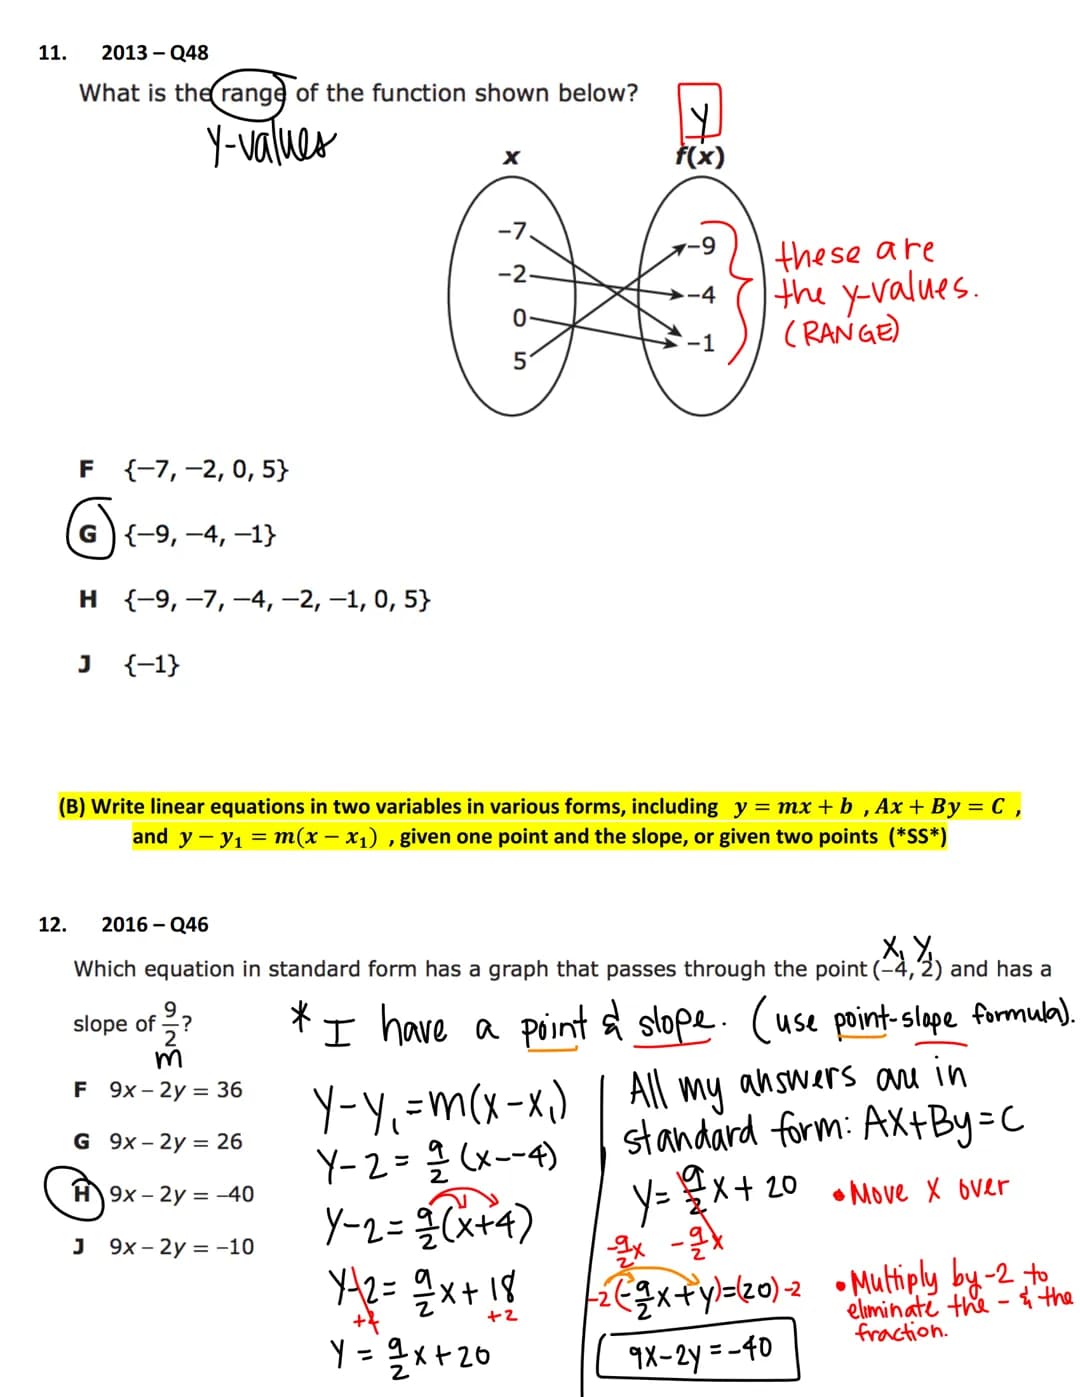 11. 2013 – Q48
What is the range of the function shown below?
y-values
y
x f(x)
−7
−2
0
5
−9
−4
−1
these are
the y-values.
(RANGE)
F {−7, −2, 0, 5}
G {−9, −4, −1}
H {−9, −7, −4, −2, −1, 0, 5}
J {−1}
(B) Write linear equations in two variables in various forms, including y = mx + b , Ax + By = C ,
and y − y₁ = m(x − x₁) , given one point and the slope, or given two points (*SS*)
12. 2016 – Q46
x₁ y₁
Which equation in standard form has a graph that passes through the point (−4, 2) and has a
slope of 9/2?
m
* I have a point & slope. (use point-slope formula).
F 9x – 2y = 36
G 9x – 2y = 26
H 9x – 2y = –40
J 9x – 2y = –10
y-y₁=m(x-x₁)
y-2= 9/2 (x--4)
y-2= 9/2(x+4)
y-2= 9/2x+18
+2 +2
y = 9/2x+20
All my answers are in
standard form: Ax+By=C
y= 9/2x+20
• Move x over
-9/2x -9/2x
-2(-9/2x+y)=(20)-2
• Multiply by -2 to
eliminate the - & the
fraction.
9x-2y=-40